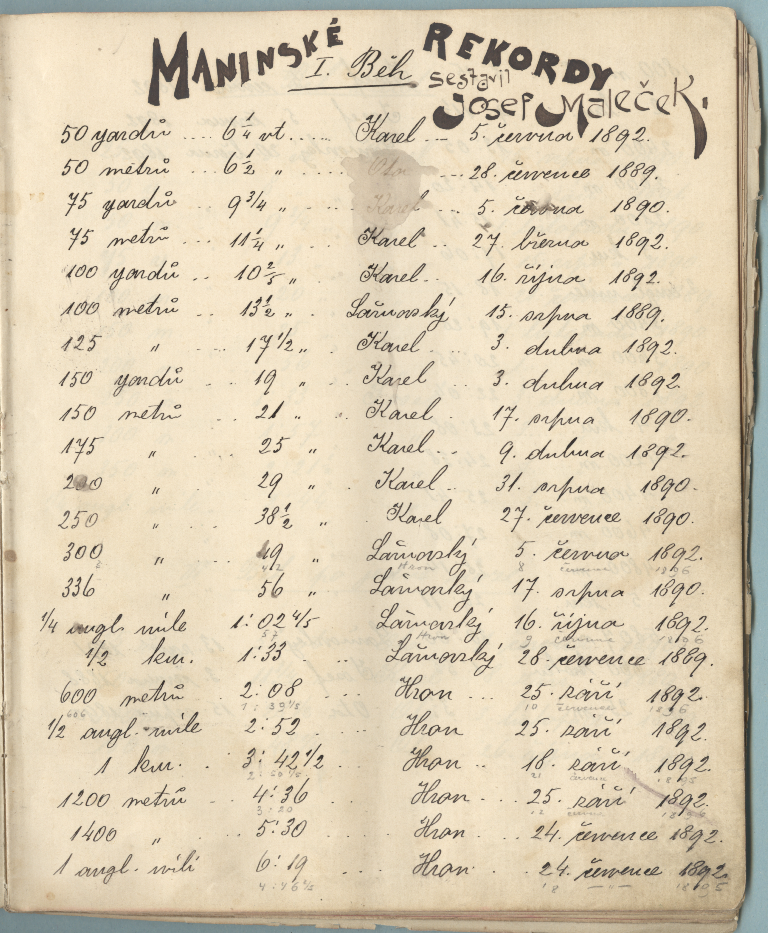 MANINSKÉ REKORDY
I. Běh sestavil
Josef Maleček.
50 yardů .... 6 1/4 vt. .... Karel ... 5. června 1892.
50 metrů ... 6 1/2 „ .... Ota ... 28. července 1889.
75 yardů .. 9 3/4 „ .... Karel ... 5. června 1890.
75 metrů ... 11 1/4 „ .... Karel .. 27. března 1892.
100 yardů .. 10 2/5 „ ... Karel .. 16. října 1892.
100 metrů .. 13 1/2 „ . Lášnovský 15. srpna 1889.
125 „ .... 17 1/2 „ .. Karel .. 3. dubna 1892.
150 yardů .. 19 „ .. Karel .. 3. dubna 1892.
150 metrů .. 21 „ .. Karel . 17. srpna 1890.
175 „ .. 25 „ .. Karel .. 9. dubna 1892.
200 „ . 29 „ . Karel . 31. srpna 1890.
250 „ . 38 1/2 „ . Karel 27. července 1890.
300 „ 49 „ . Lášnovský 5. června 1892.
42 Hron 8 července 1896
336 „ 56 „ . Lášnovský 17. srpna 1890.
1/4 angl. míle 1:02 4/5 Lášnovský 16. října 1892.
57 Hron 9 července 1896
1/2 km. 1:33 .. Lášnovský 28. července 1889.
600 metrů . 2:08 ... Hron ... 25. září 1892.
606 1:39 1/5 10 července 1896
1/2 angl. míle 2:52 .... Hron 25. září 1892.
1 km. . 3:42 1/2 ... Hron .. 18. září 1892.
21 června 1895
1200 metrů . 4:36 .... Hron ... 25. září 1892.
3:20
1400 „ . 5:30 ... Hron ... 24. července 1892.
1 angl. míli 6:19 .... Hron ... 24. července 1892.
18 „ 1895